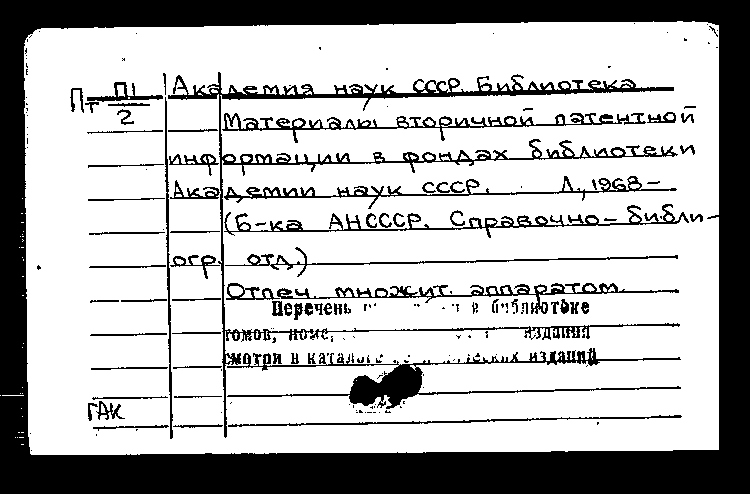 Пт П1/2 Академия наук СССР. Библиотека
Материалы вторичной патентной
информации в фондах библиотеки
Академии наук СССР. Л., 1968-
(Б-ка АНСССР. Справочно-библи-
огр. отд.)
Отпеч. множит. аппаратом.
Перечень в библиотеке
томов, издания
смотри в каталоге изданий
ГАК